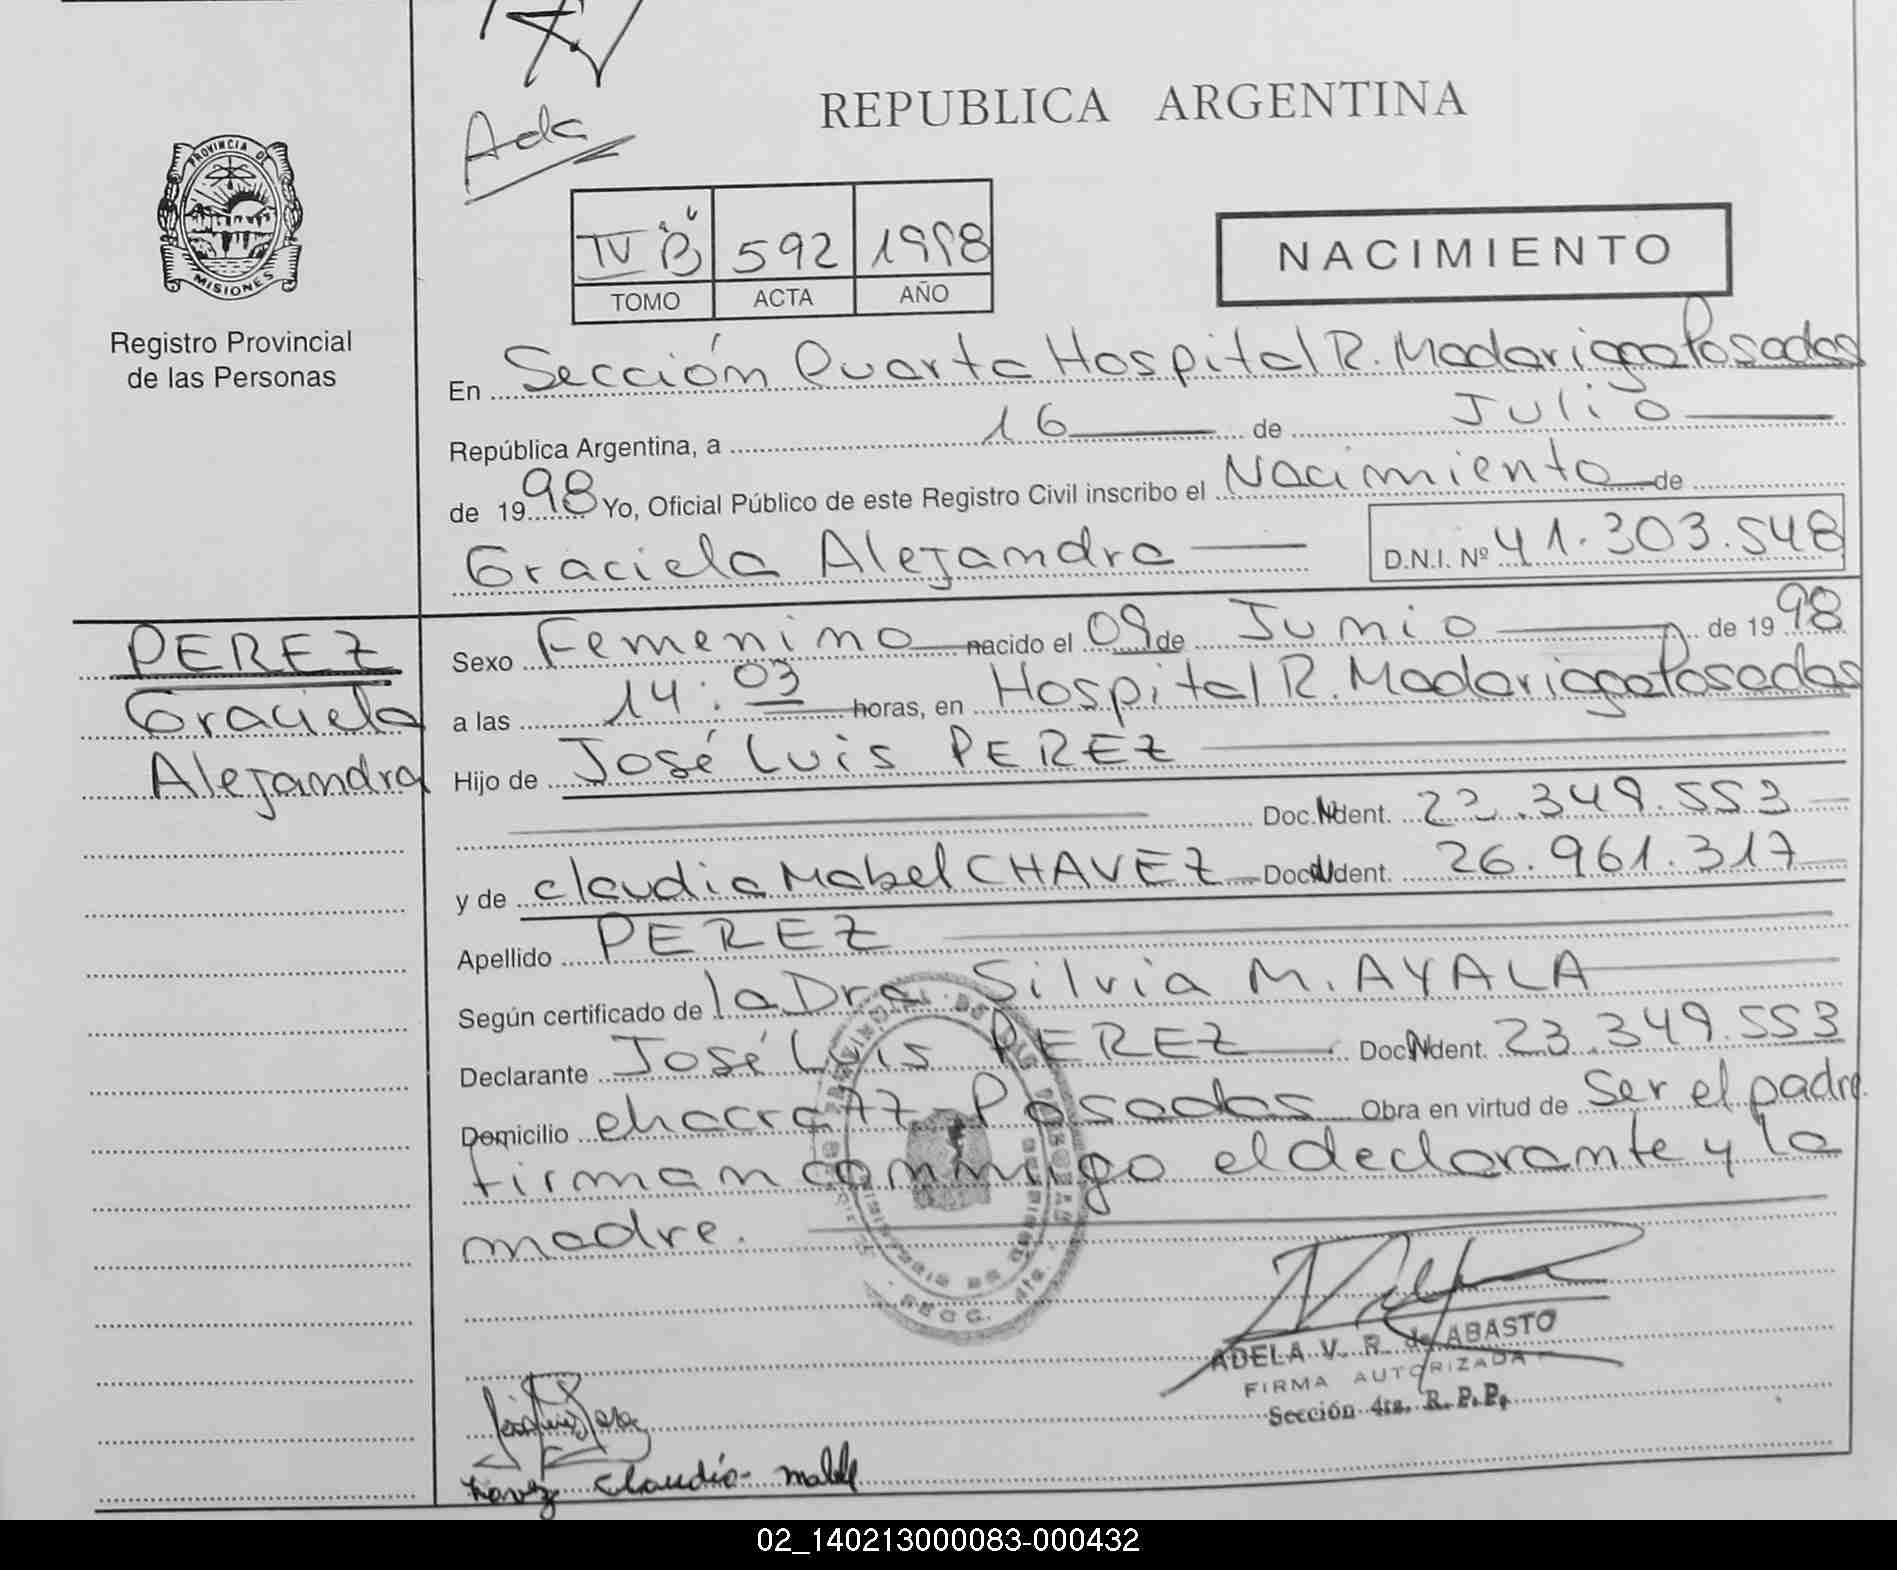 Ada
REPUBLICA ARGENTINA
PROVINCIA DE
MISIONES
Registro Provincial
de las Personas
IV "B" 592 1998
TOMO ACTA AÑO
NACIMIENTO
En Sección Cuarta Hospital R. Madariaga Posadas
República Argentina, a 16 de Julio
de 1998 Yo, Oficial Público de este Registro Civil inscribo el Nacimiento de
Graciela Alejandra D.N.I. Nº 41.303.548
PEREZ
Graciela
Alejandra
Sexo Femenino nacido el 09 de Junio de 1998
a las 14:03 horas, en Hospital R. Madariaga Posadas
Hijo de José Luis PEREZ
Doc. Ident. 22.349.553
y de Claudia Mabel CHAVEZ Doc. Ident. 26.961.317
Apellido PEREZ
Según certificado de la Dra Silvia M. AYALA
Declarante José Luis PEREZ Doc. Ident. 23.349.553
Domicilio chacra 77 Posadas Obra en virtud de ser el padre.
firman conmigo el declarante y la
madre.
SECC. 4ta.
ADELA V. R. de ABASTO
FIRMA AUTORIZADA
Sección 4ta. R.P.P.
Claudia Mabel
02_140213000083-000432